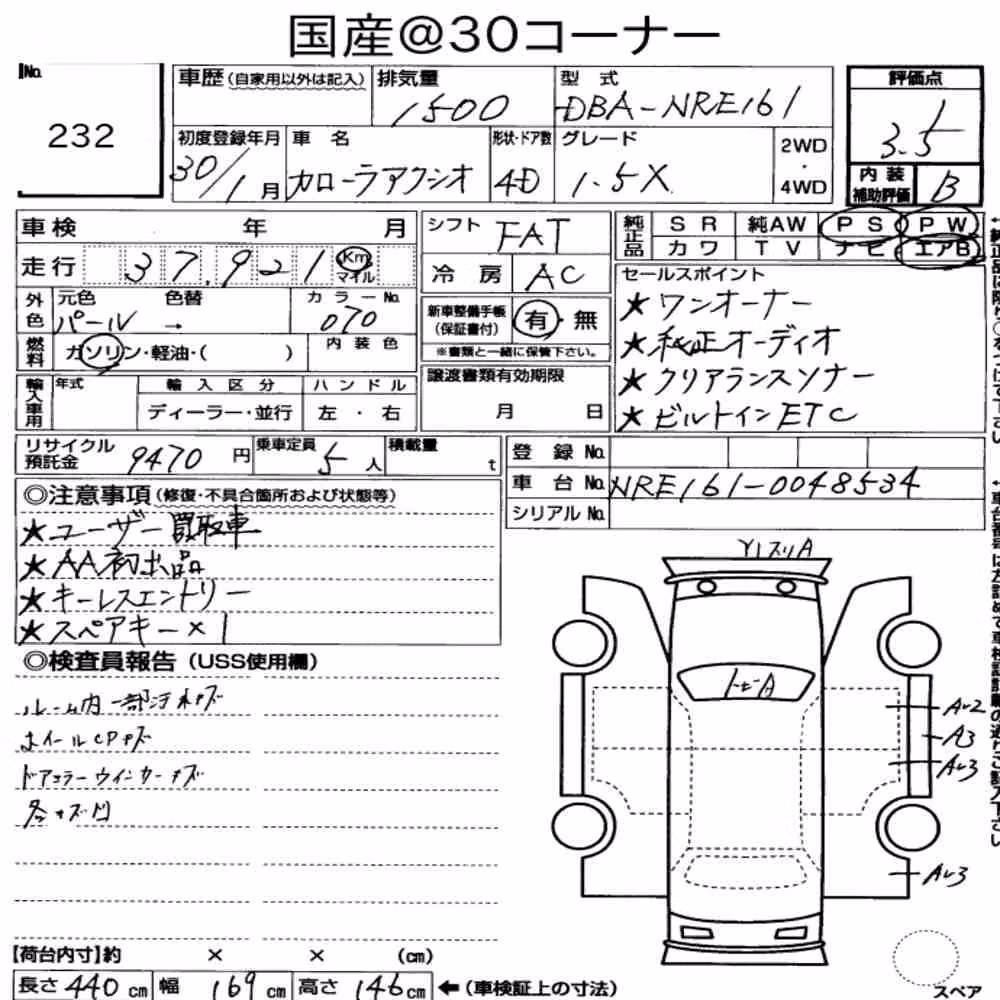 国産@30コーナー
No. 232
車歴(自家用以外は記入) 排気量 1500 型式 DBA-NRE161 評価点 3.5
初度登録年月 30/1月 車名 カローラアクシオ 形状・ドア数 4D グレード 1.5X 2WD・4WD 内装補助評価 B
車検 年 月 シフト FAT 純正品 SR 純AW PS PW
カワ TV ナビ エアB
走行 37,921 Km マイル 冷房 AC
セールスポイント
★ワンオーナー
★純正オーディオ
★クリアランスソナー
★ビルトインETC
外色 元色 パール → 色替 カラーNo. 070
新車整備手帳(保証書付) 有・無
※書類と一緒に保管下さい。
燃料 ガソリン・軽油・( ) 内装色
譲渡書類有効期限 月 日
輸入車用 年式 輸入区分 ハンドル
ディーラー・並行 左・右
リサイクル預託金 9470円 乗車定員 5人 積載量 t
登録No.
車台No. NRE161-0048534
シリアルNo.
◎注意事項(修復・不具合箇所および状態等)
★ユーザー買取車
★AA初出品
★キーレスエントリー
★スペアキー×1
◎検査員報告(USS使用欄)
ルーム内一部汚れキズ
ホイールCPキズ
ドアミラーウインカーキズ
各キズ凹
トビA
A-2
A3
A-3
A-3
スペア
【荷台内寸】約 × × (cm)
長さ 440 cm 幅 169 cm 高さ 146 cm ←(車検証上の寸法)